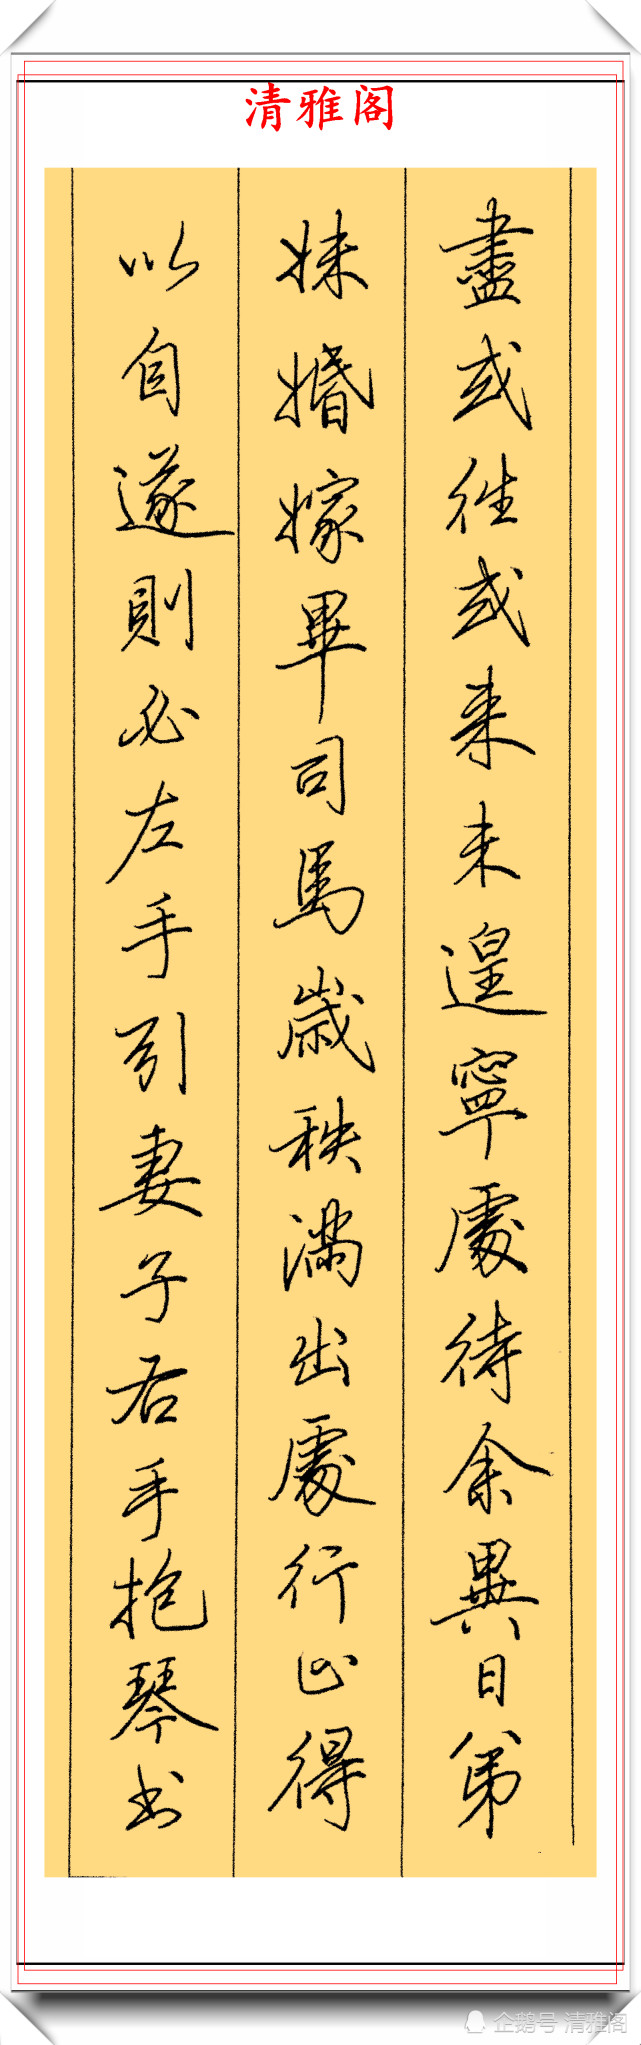 清雅阁
盡或往或来未遑寧處待余異日弟
妹婚嫁畢司馬歲秩滿出處行止得
以自遂則必左手引妻子右手抱琴书
企鹅号 清雅阁